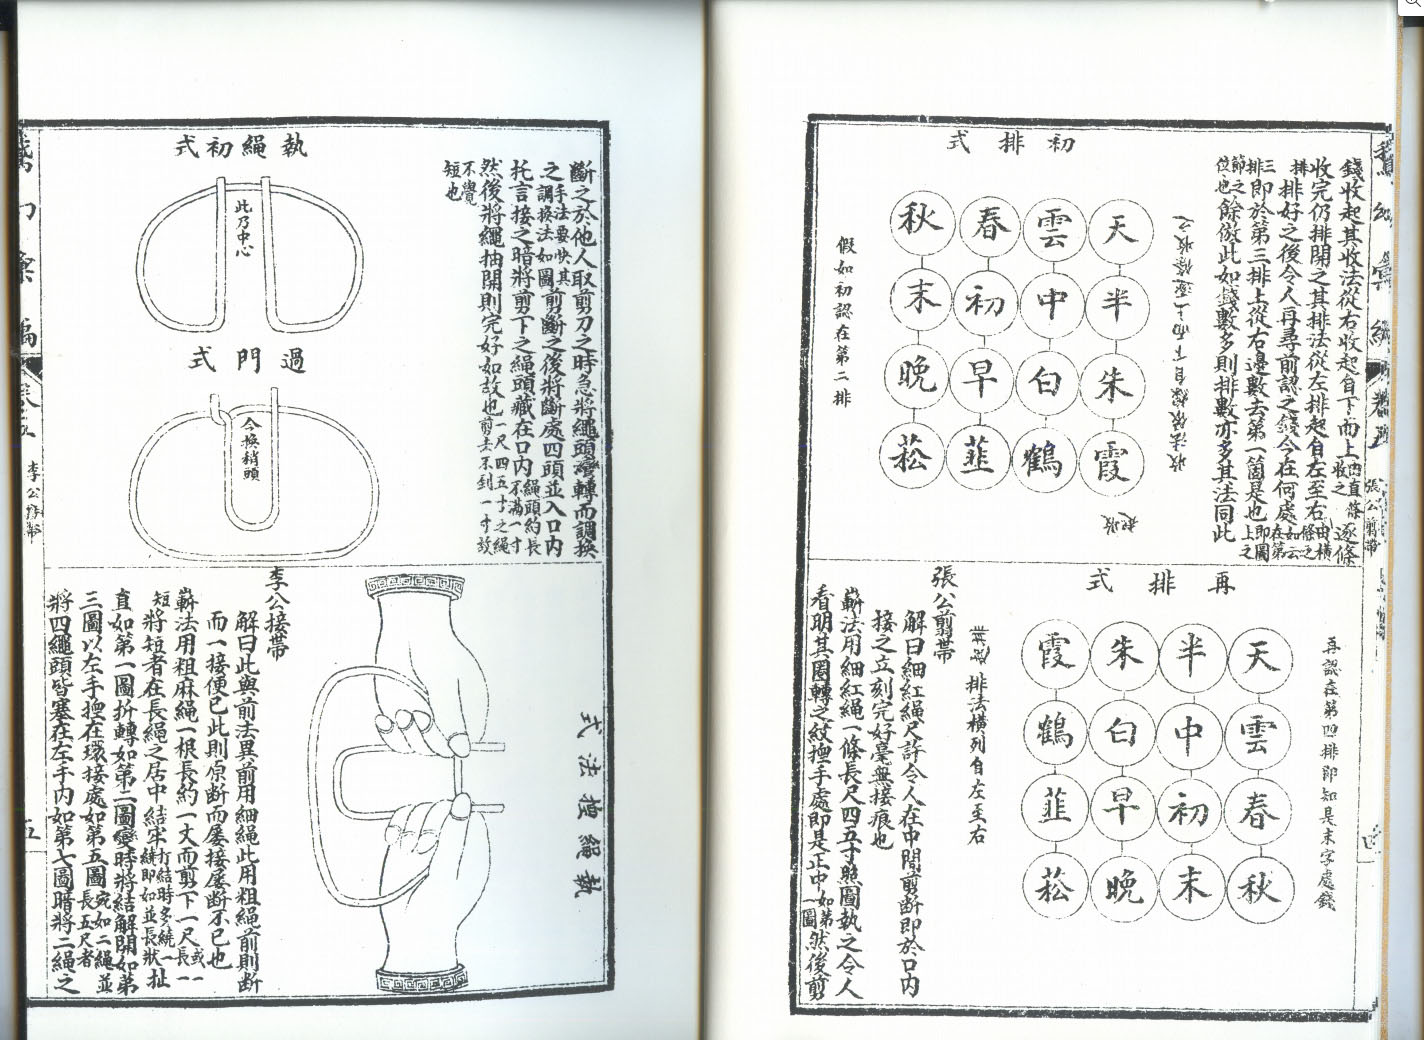 錢收起其收法從右收起自下而上收之直條逐條
收完仍排開之其排法從左排起自左至右由橫條之
排排好之後令人再尋前認之錢今在何處如云在第
三排即於第三排上從右邊數去第一箇是也即圖上之
節之位也餘倣此如錢數多則排數亦多其法同此
初排式
天 雲 春 秋
半 中 初 末
朱 白 早 晚
霞 鶴 韮 菘
假如初認在第二排
再排式
再認在第四排即知是末字處錢
天 半 朱 霞
雲 中 白 鶴
春 初 早 韮
秋 末 晚 菘
排法橫列自左至右
張公剪帶
解曰細紅繩尺許令人在中間剪斷即於口内
接之立刻完好毫無接痕也
嶄法用細紅繩一條長尺四五寸照圖執之令人
看明其圈轉之紋揑手處即是正中如第一圖然後剪
斷之於他人取剪刀之時急將繩頭彎轉而調換
之手法要快其調換法如圖前剪斷之後將斷處四頭並入口内
托言接之暗將剪下之繩頭藏在口内繩頭約長不滿一寸
然後將繩抽開則完好如故也一尺四五寸之繩剪去不到一寸故
不覺短也
執繩初式
此乃中心
過門式
今換稍頭
執繩揑法式
李公接帶
解曰此與前法異前用細繩此用粗繩前則斷
而一接便已此則原斷而屢接屢斷不已也
嶄法用粗麻繩一根長約一丈而剪下一尺或一長一
短將短者在長繩之居中結牢打結時多繞一繞即如並長狀扯
直如第一圖折轉如第二圖彎時將結解開如第
三圖以左手揑在環接處如第五圖宛如二繩並長五尺者
將四繩頭皆塞在左手内如第七圖暗將二繩之
李公接帶
五